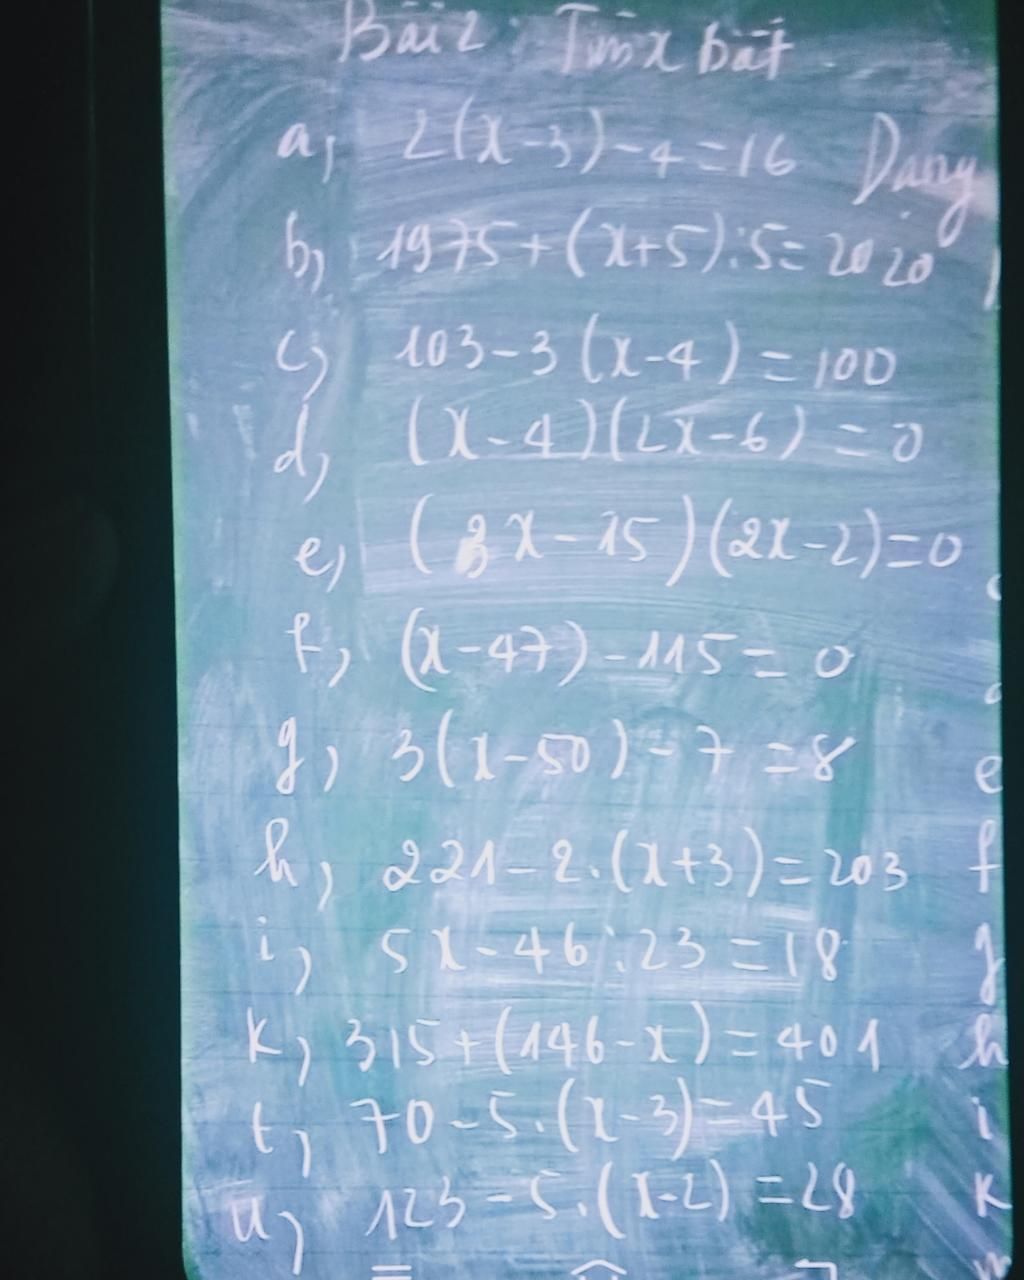 Bài 2: Tìm x biết
a, 2(x-3)-4=16 Dạng
b, 1975+(x+5):5=2020
c, 103-3(x-4)=100
d, (x-4)(2x-6)=0
e, (3x-15)(2x-2)=0
f, (x-47)-115=0
g, 3(x-50)-7=8 e
h, 221-2.(x+3)=203 f
i, 5x-46:23=18 g
k, 315+(146-x)=401 h
t, 70-5.(x-3)=45 i
u, 123-5.(x-2)=28 k